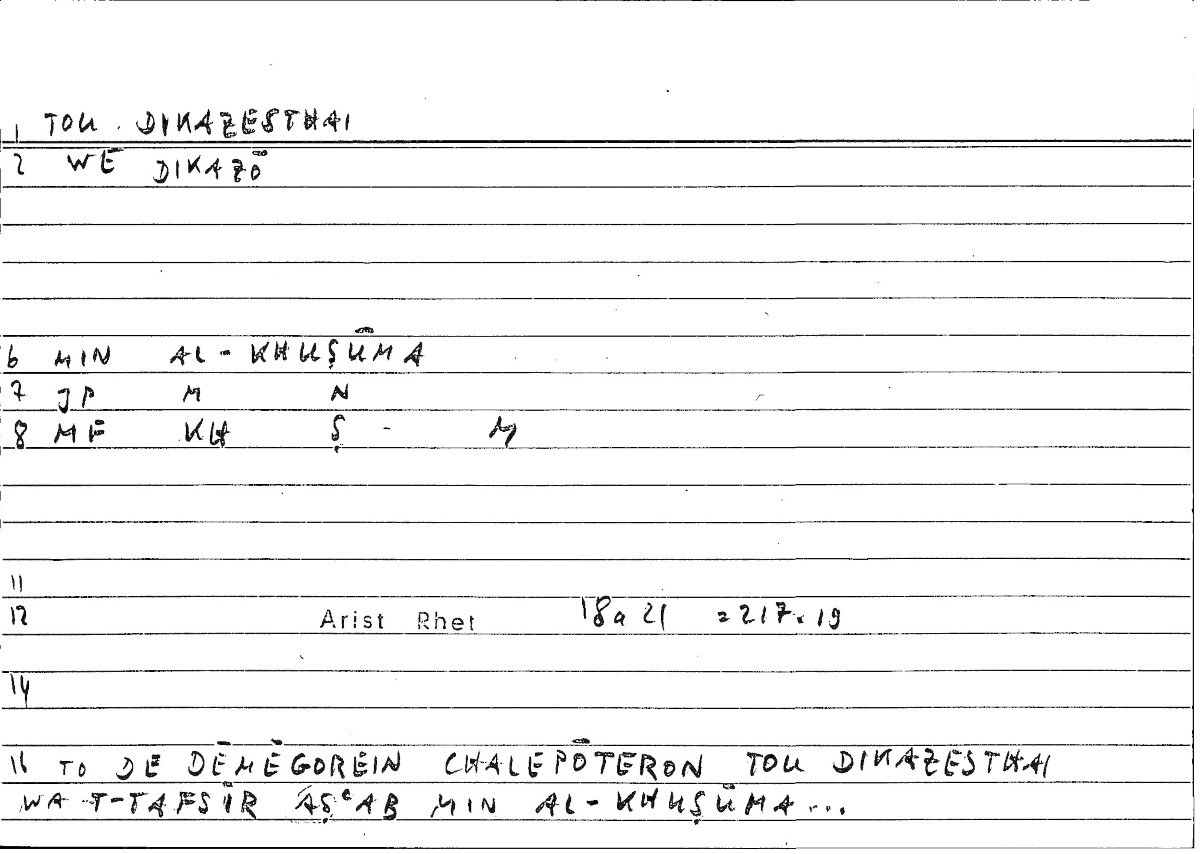 1 TOU DIKAZESTHAI
2 WE DIKAZŌ
6 MIN AL-KHUṢŪMA
7 JP M N
8 MF KH Ṣ - M
11
12 Arist Rhet 18a 21 = 217.19
14
16 TO DE DĒMĒGOREIN CHALEPŌTERON TOU DIKAZESTHAI
WA T-TAFSĪR AṢʿAB MIN AL-KHUṢŪMA...